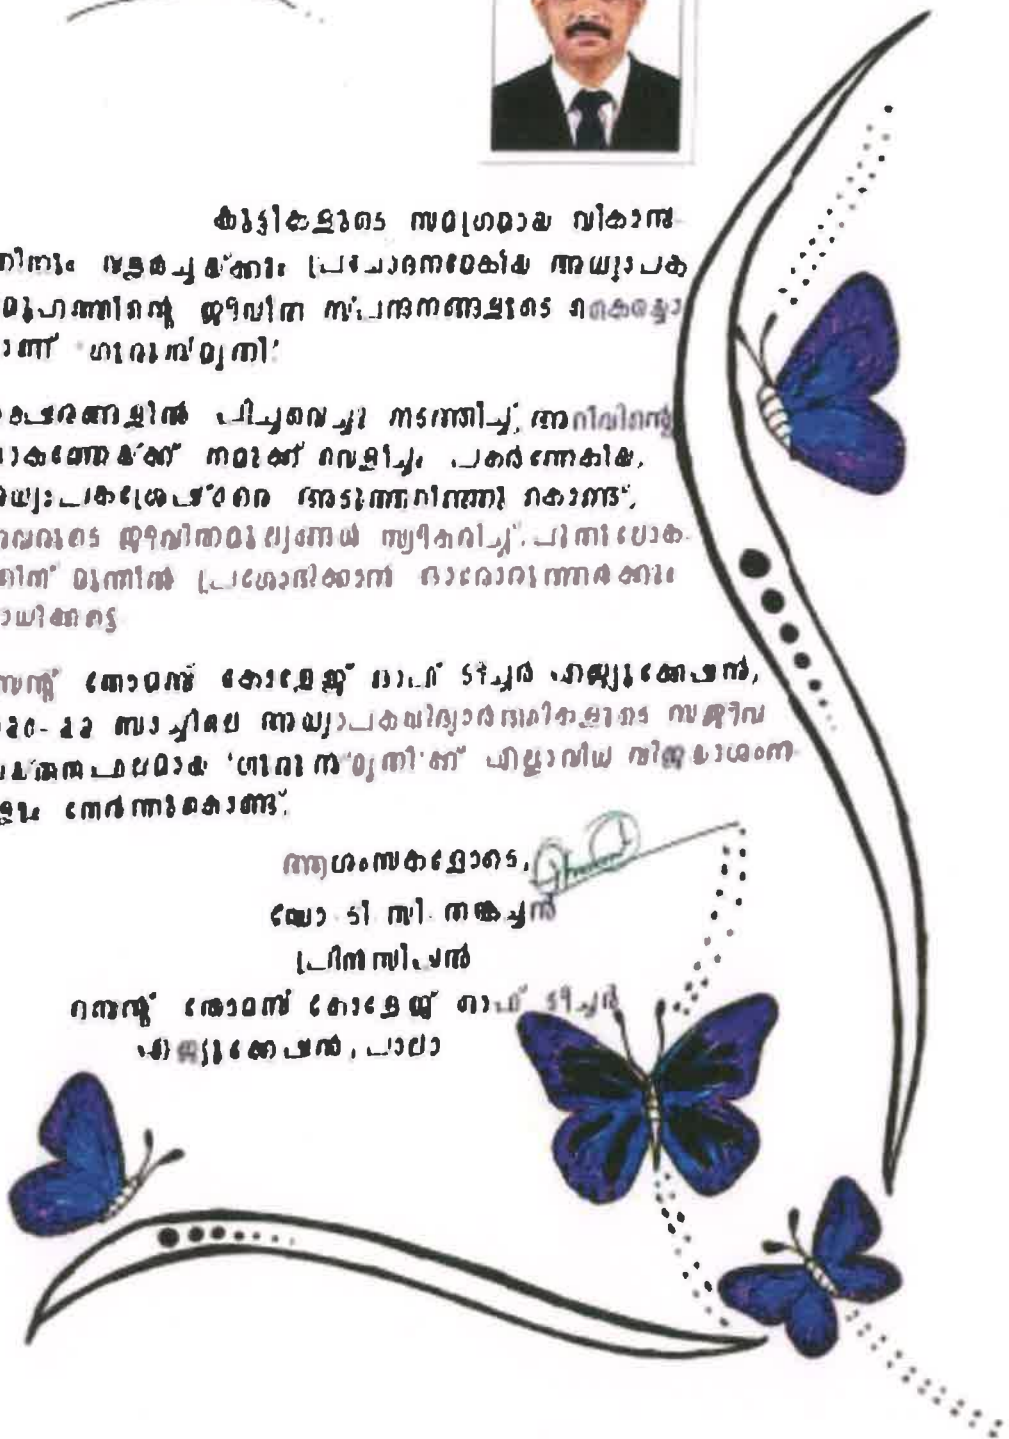 കുട്ടികളുടെ സമഗ്രമായ വികാസ
ത്തിനും വളർച്ചയ്ക്കും പ്രചോദനമേകിയ അധ്യാപക
സമൂഹത്തിന്റെ ജീവിത സ്പന്ദനങ്ങളുടെ കൈയ്യൊ
പ്പാണ് 'ഗുരുസ്മൃതി'
പിച്ചവെച്ചു നടത്തിച്ച്, അറിവിന്റെ
ലോകത്തേയ്ക്ക് നമുക്ക് വെളിച്ചം പകർന്നേകിയ,
അധ്യാപകശ്രേഷ്ഠരെ അടുത്തറിഞ്ഞു കൊണ്ട്,
അവരുടെ ജീവിതമൂല്യങ്ങൾ സ്വീകരിച്ച്, പുതുലോക
ത്തിന് മുന്നിൽ പ്രശോഭിക്കാൻ ഓരോരുത്തർക്കും
സാധിക്കട്ടെ
സെന്റ് തോമസ് കോളേജ് ഓഫ് ടീച്ചർ എജ്യൂക്കേഷൻ,
ബാച്ചിലെ അധ്യാപകവിദ്യാർത്ഥികളുടെ സജീവ
പ്രയത്നഫലമായ 'ഗുരുസ്മൃതി'ക്ക് എല്ലാവിധ വിജയാശംസ
കളും നേർന്നുകൊണ്ട്,
ആശംസകളോടെ,
ഡോ ടി സി. തങ്കച്ചൻ
പ്രിൻസിപ്പൽ
സെന്റ് തോമസ് കോളേജ് ഓഫ് ടീച്ചർ
എജ്യൂക്കേഷൻ, പാലാ